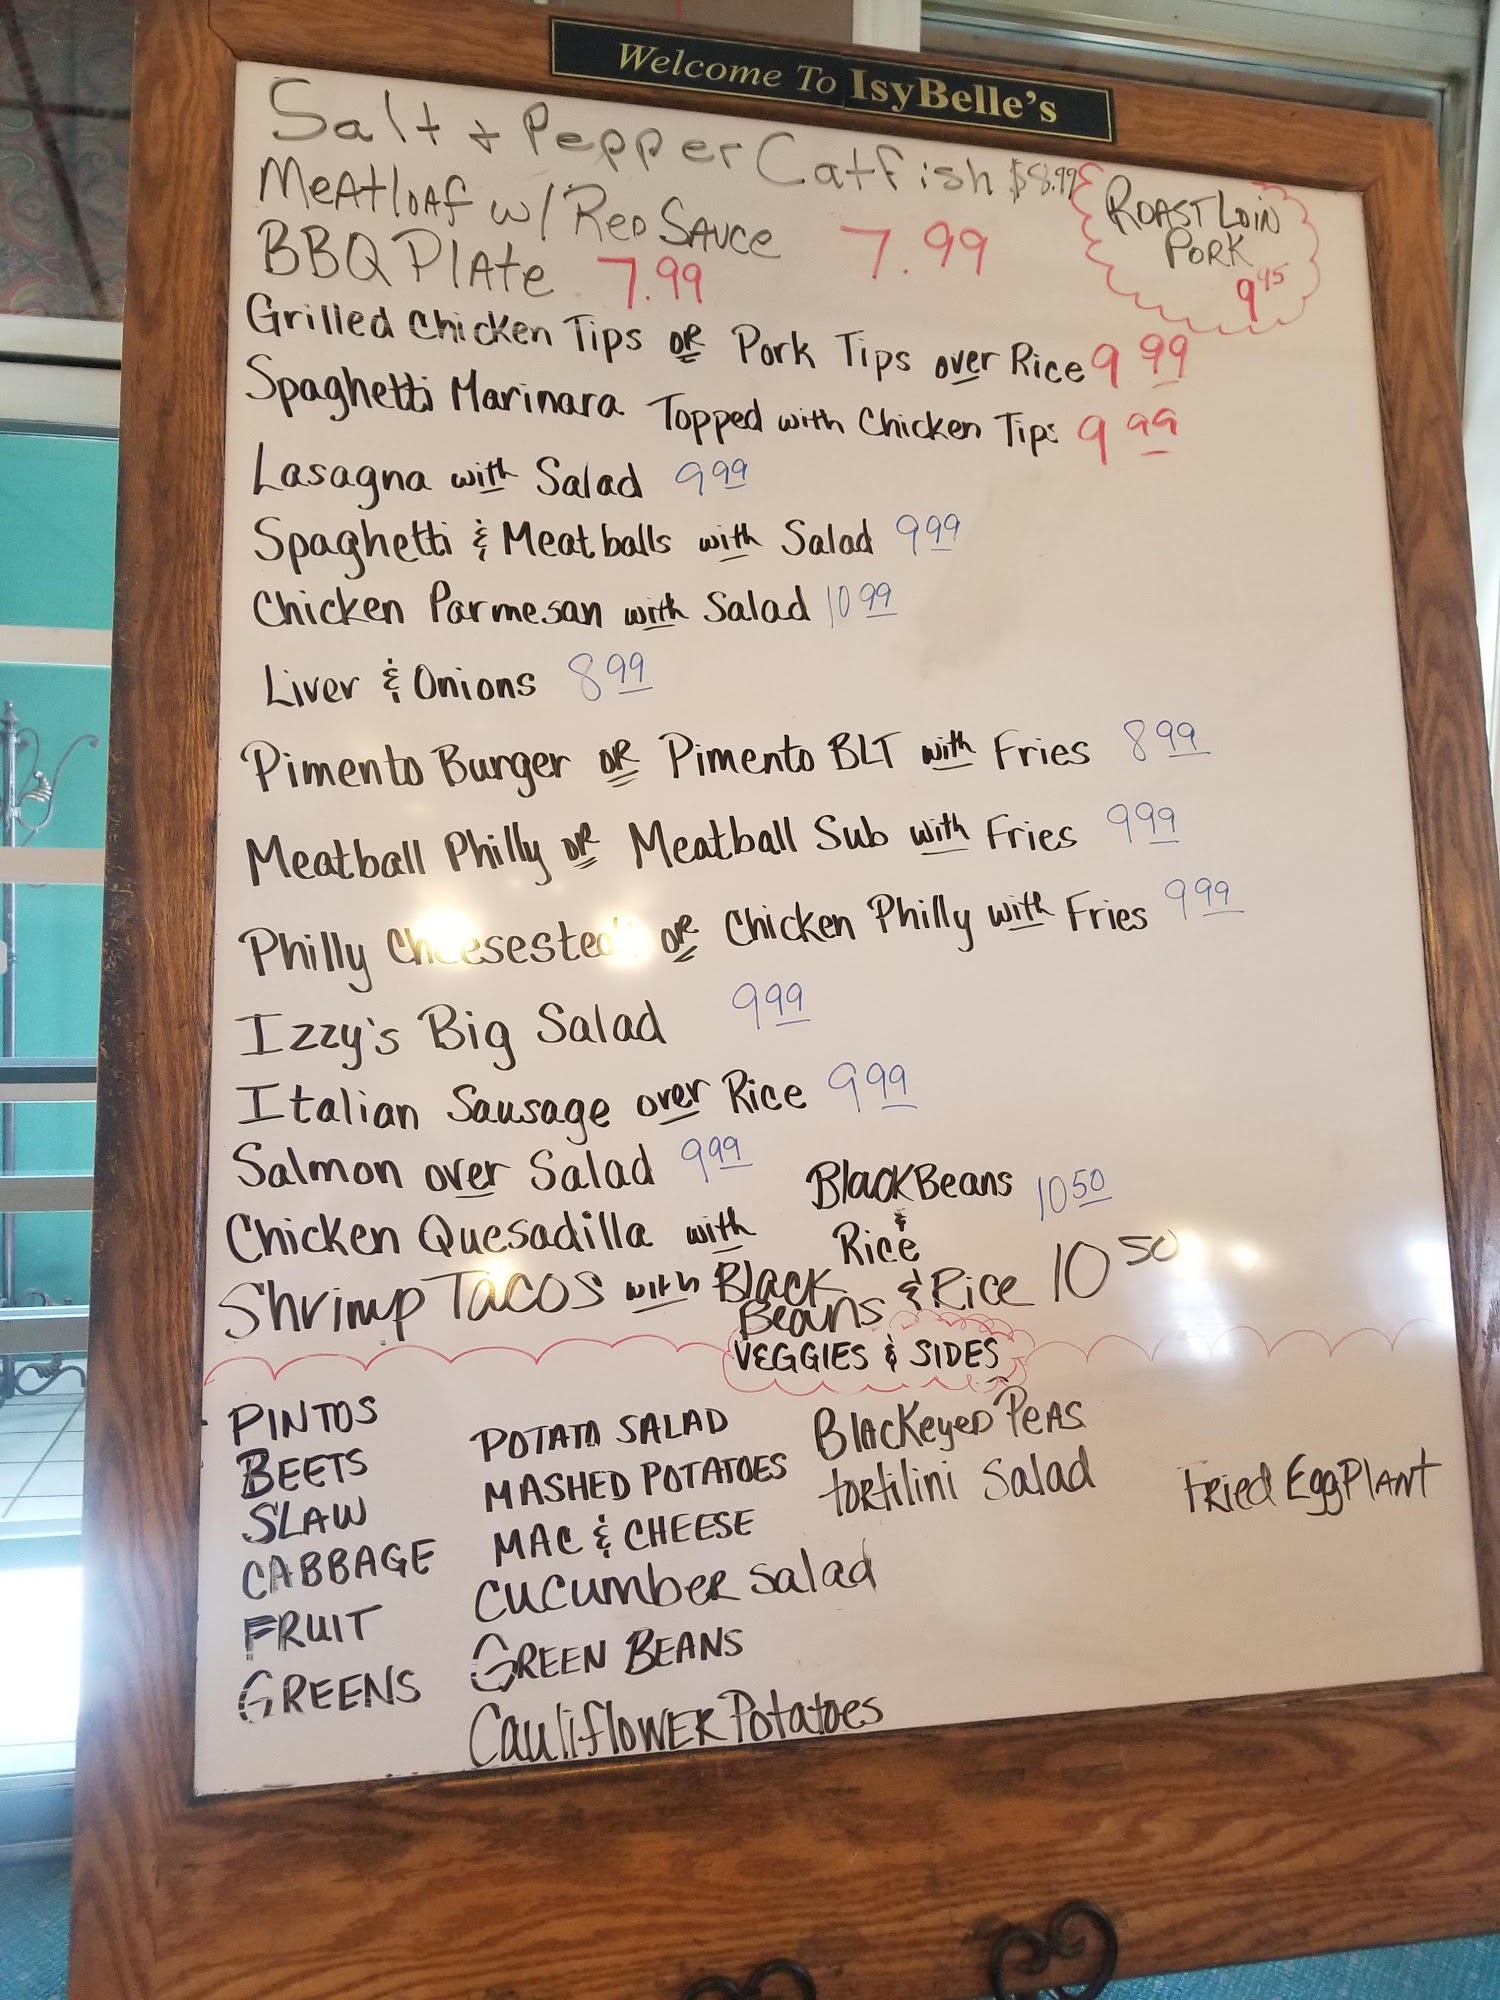 Welcome To IsyBelle's
Salt + Pepper Catfish $8.99
Meatloaf w/ Red Sauce 7.99
BBQ Plate 7.99
Roast Loin
Pork
9 95
Grilled Chicken Tips or Pork Tips over Rice 9 99
Spaghetti Marinara Topped with Chicken Tips 9 99
Lasagna with Salad 9 99
Spaghetti & Meatballs with Salad 9 99
Chicken Parmesan with Salad 10 99
Liver & Onions 8 99
Pimento Burger or Pimento BLT with Fries 8 99
Meatball Philly or Meatball Sub with Fries 9 99
Philly Cheesesteak or Chicken Philly with Fries 9 99
Izzy's Big Salad 9 99
Italian Sausage over Rice 9 99
Salmon over Salad 9 99
Chicken Quesadilla with Black Beans & Rice 10 50
Shrimp Tacos with Black Beans & Rice 10 50
VEGGIES & SIDES
PINTOS
BEETS
SLAW
CABBAGE
FRUIT
GREENS
POTATO SALAD
MASHED POTATOES
MAC & CHEESE
Cucumber Salad
GREEN BEANS
Cauliflower Potatoes
Blackeyed Peas
tortilini Salad
Fried EggPlant